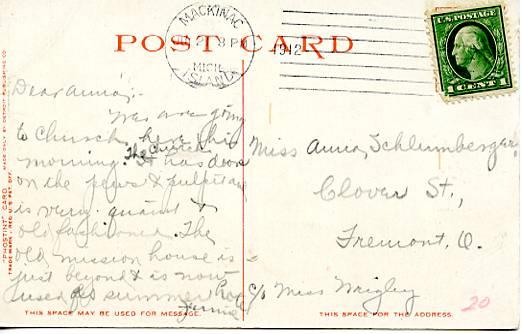 POST CARD
MACKINAC
8 PM
MICH.
ISLAND
1912
U.S. POSTAGE
1 CENT 1
"PHOSTINT" CARD
MADE ONLY BY DETROIT PUBLISHING CO.
TRADE MARK REG. U.S. PAT. OFF.
Dear Anna;-
We are going
to Church here this
morning. The Church has doors
on the pews & pulpit and
is very quaint &
old fashioned. The
old mission house is
just beyond & is now
used as summer
Jennie
THIS SPACE MAY BE USED FOR MESSAGE.
Miss Anna Schlumberger,
Clover St.,
Fremont, O.
c/o Miss Wrigley
20
THIS SPACE IS FOR THE ADDRESS.